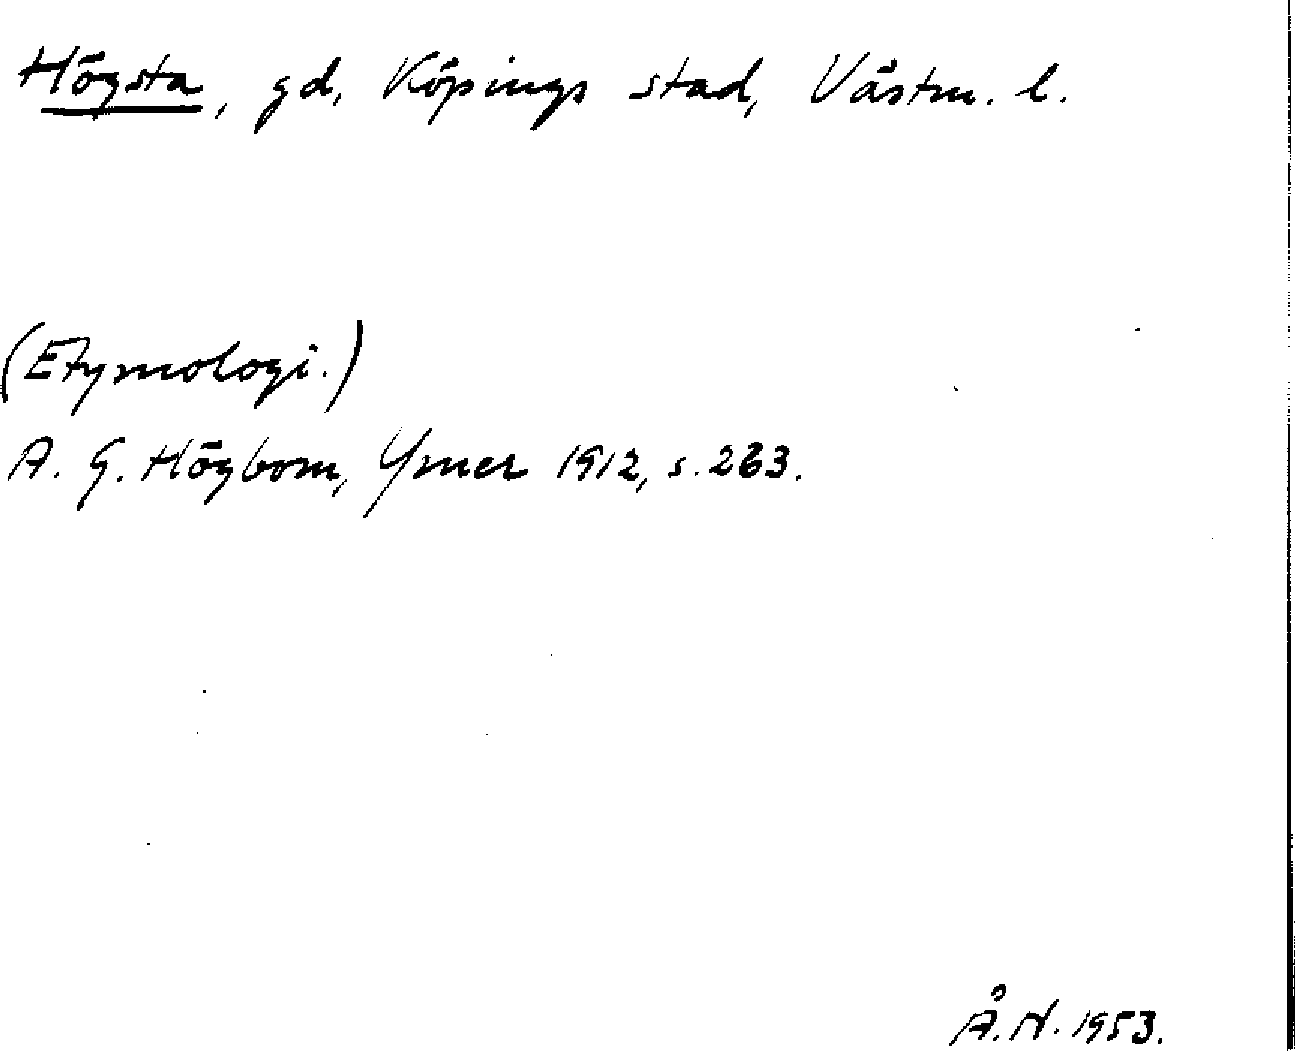 Högsta, gd, Köpings stad, Västm. l.
(Etymologi.)
A. G. Högbom, Ymer 1912, s. 263.
Å. N. 1953.